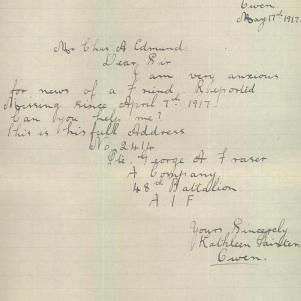 Owen.
May 17th 1917.
Mr Chas A Edmund.
Dear Sir
I am very anxious
for news of a Friend. Reported
Missing since April 7th 1917.
Can you help me?
This is his full Address
No. 2414
Pte. George A Fraser
A Company
48th Battalion
A I F
Yours Sincerely
Kathleen
Owen.